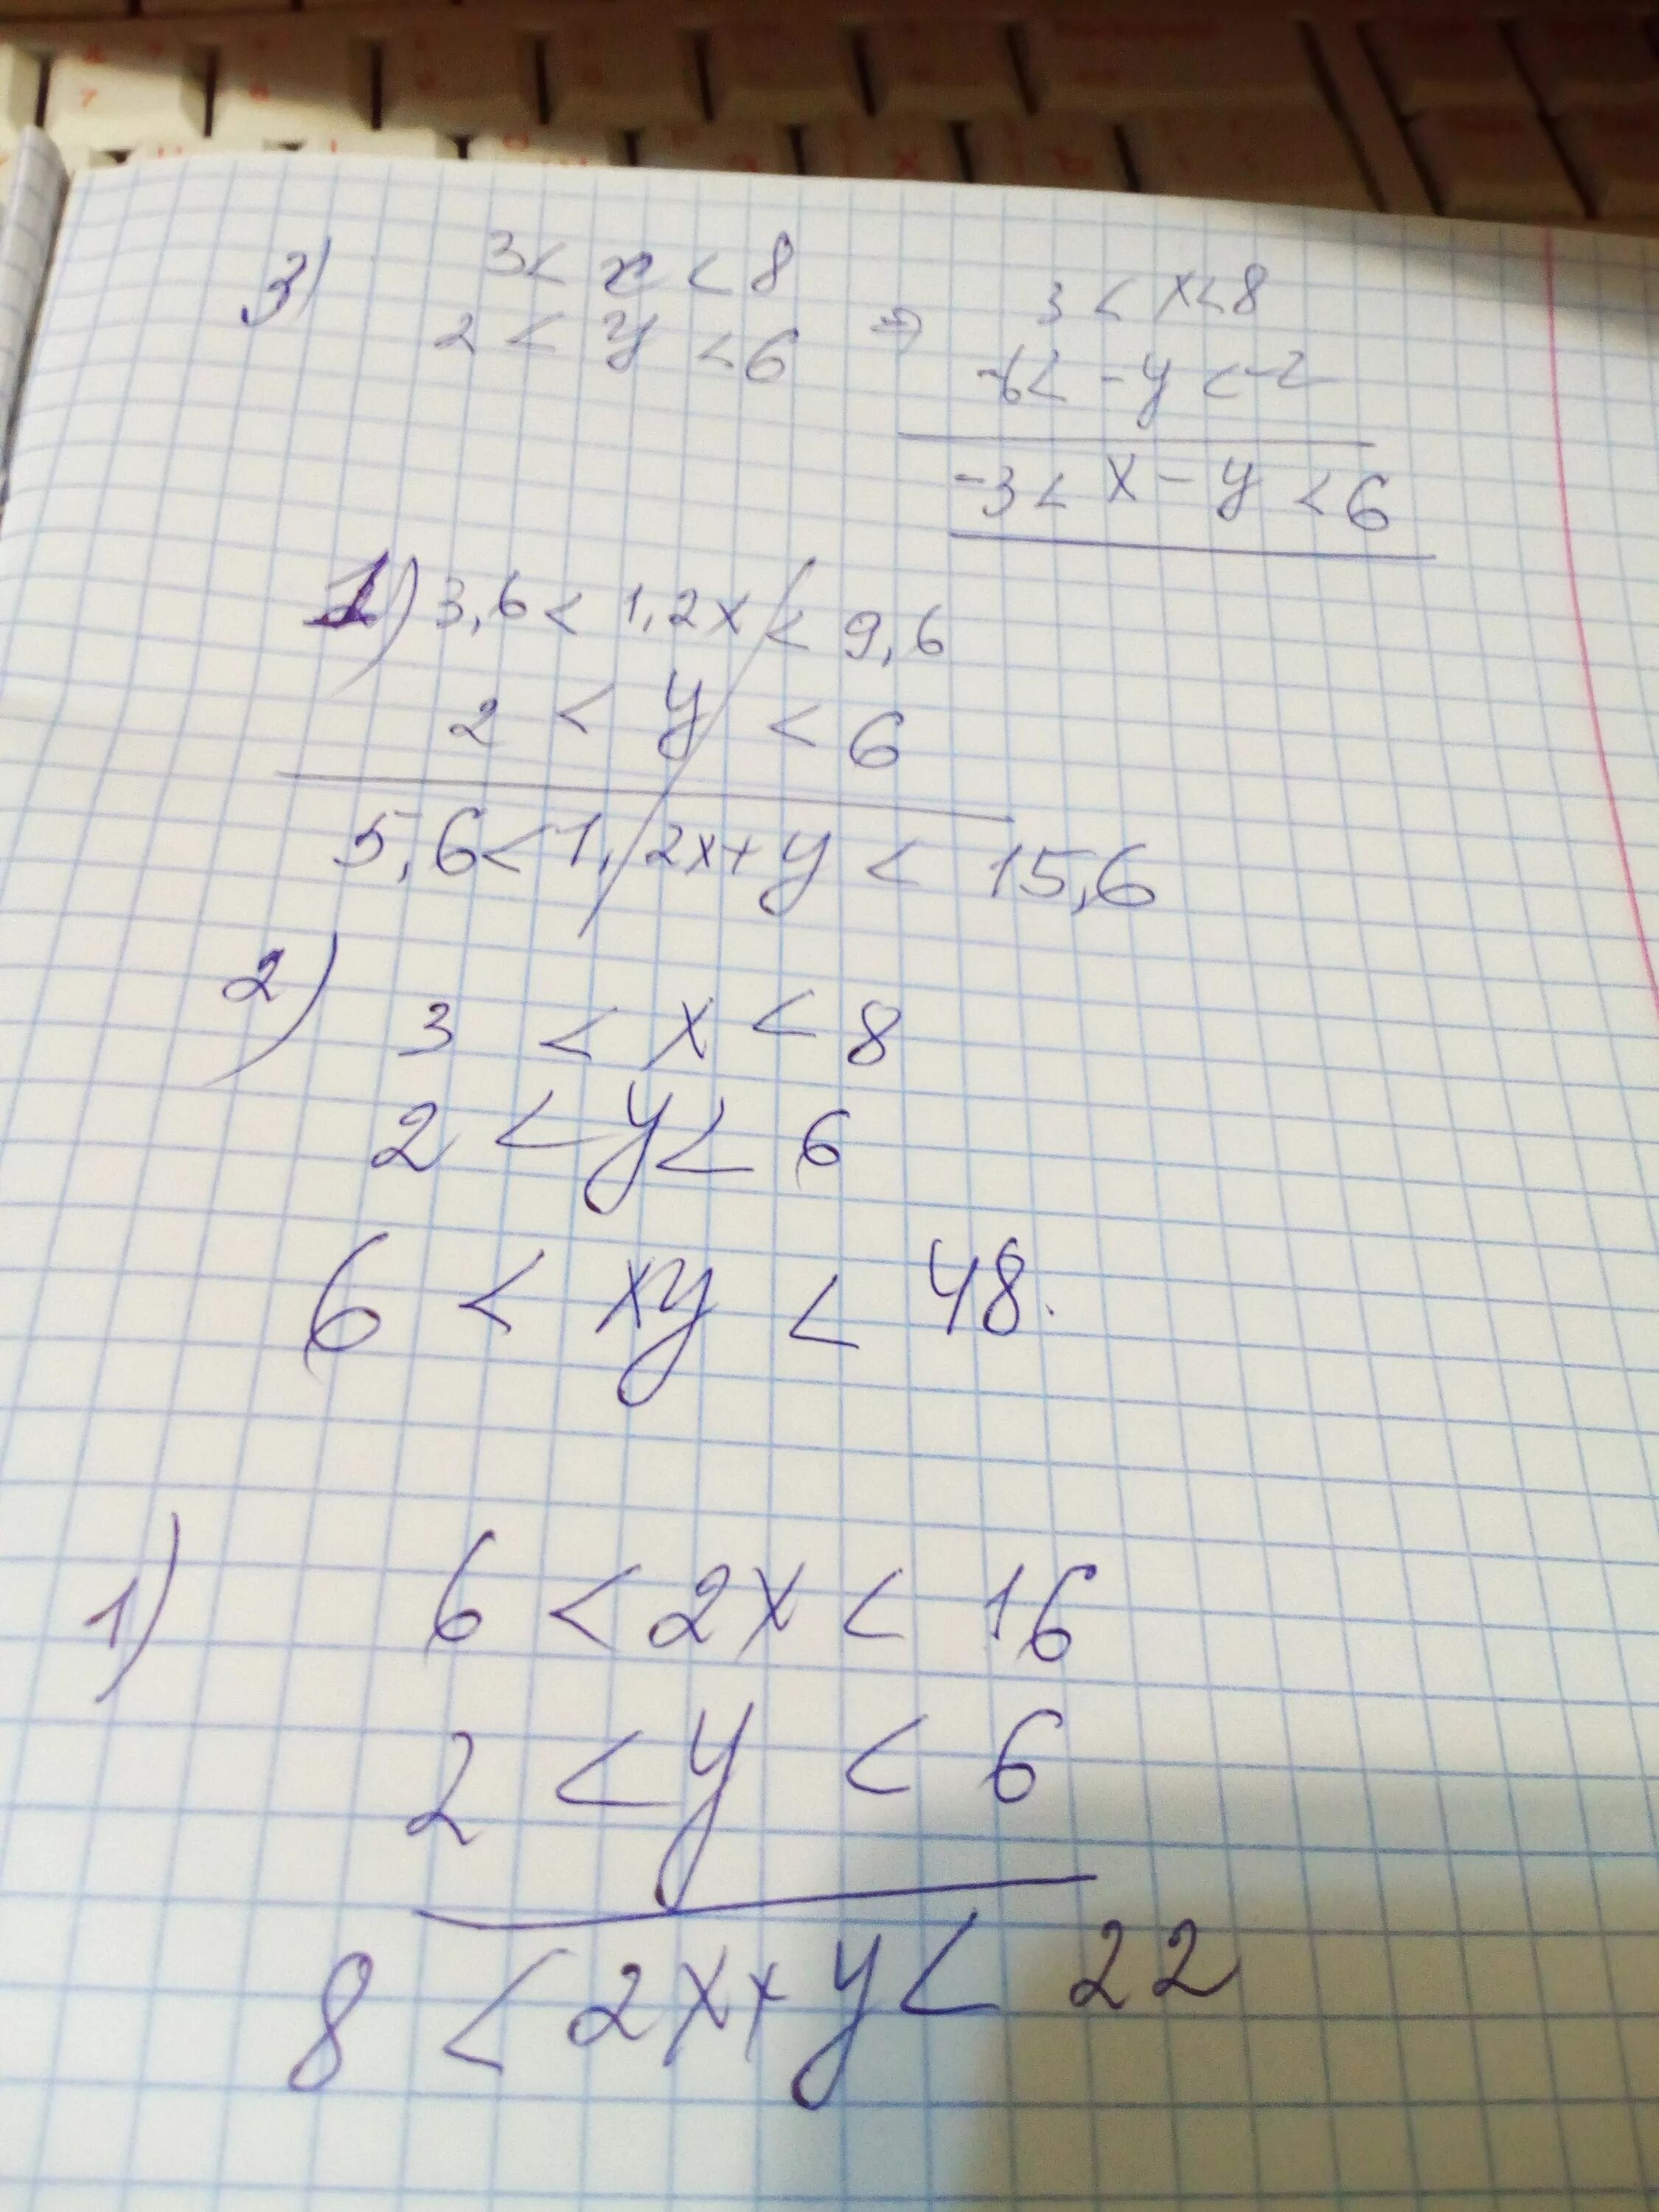 3) 3 < x < 8
2 < y < 6 ⇒
3 < x < 8
-6 < -y < -2
-3 < x - y < 6
1) 3,6 < 1,2x < 9,6
2 < y < 6
5,6 < 1,2x + y < 15,6
2) 3 < x < 8
2 < y < 6
6 < xy < 48.
1) 6 < 2x < 16
2 < y < 6
8 < 2x + y < 22